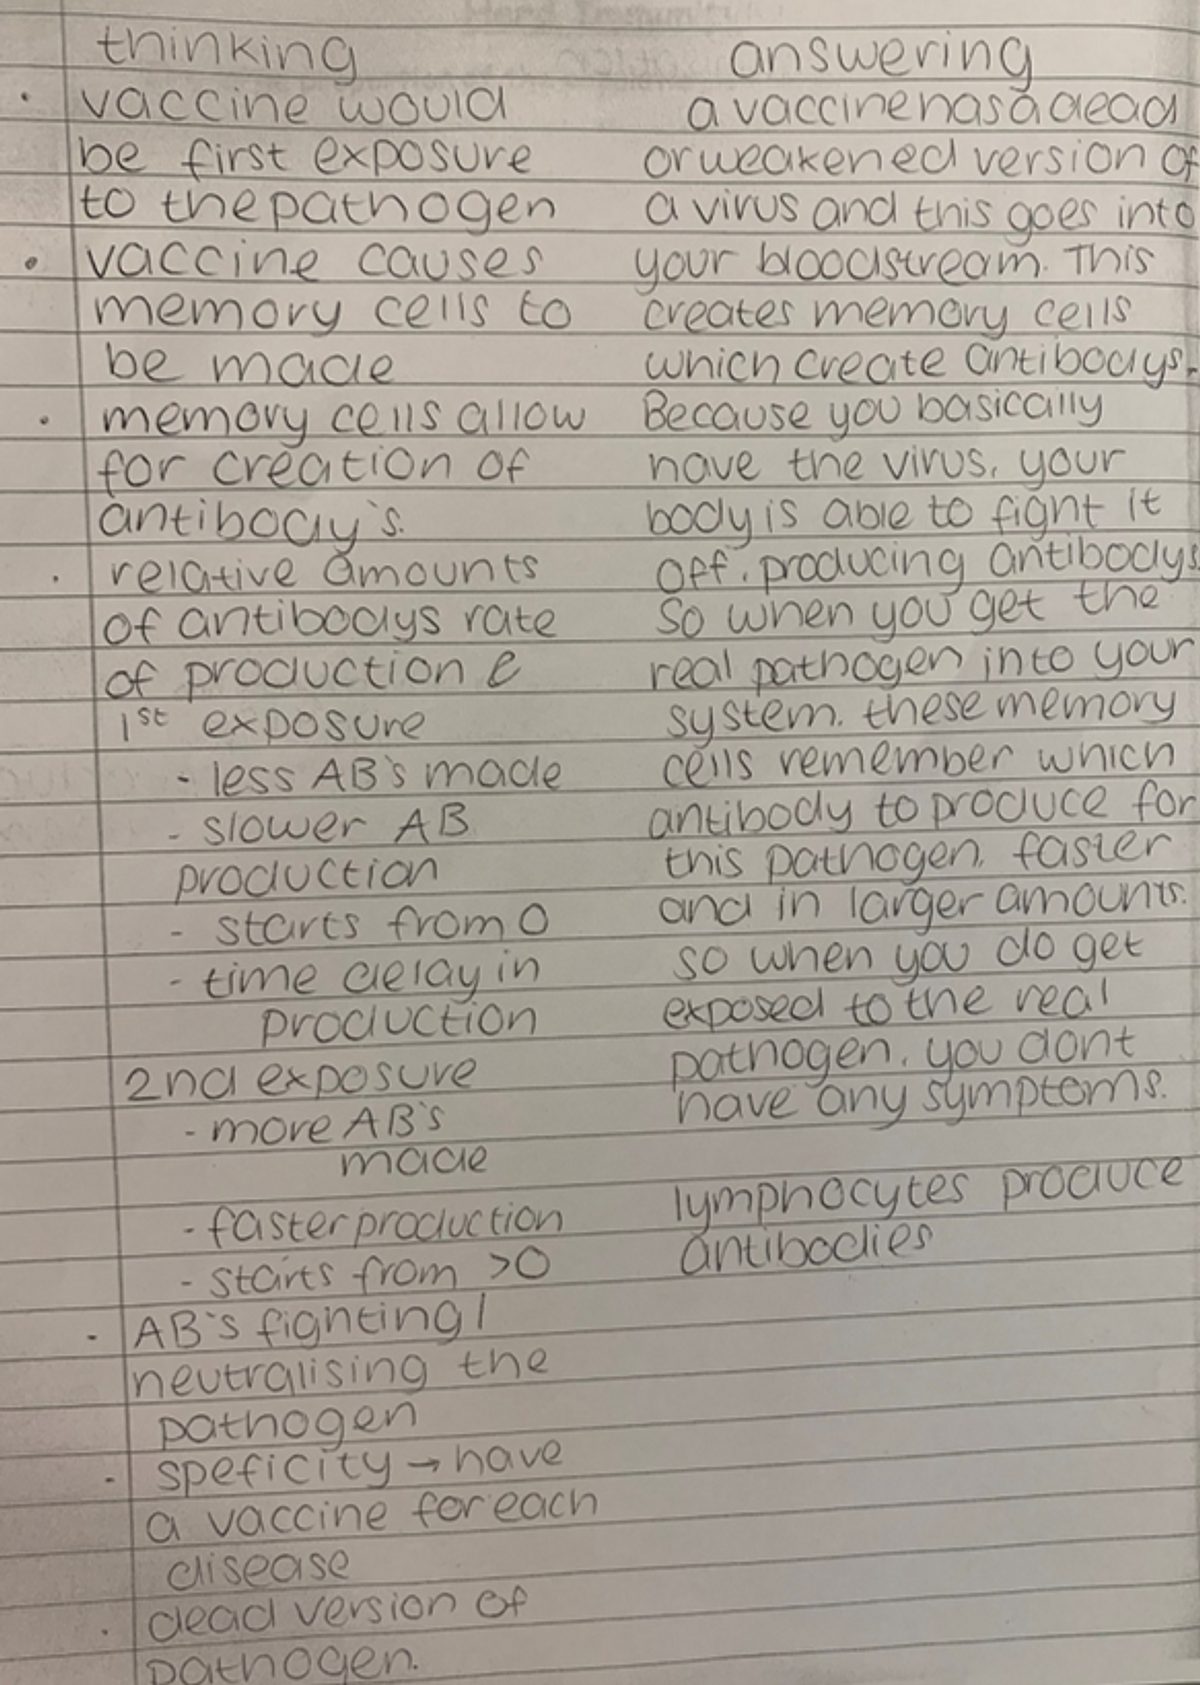 thinking
vaccine would
be first exposure
to the pathogen
• vaccine causes
memory cells to
be made
• memory cells allow
for creation of
antibody's.
• relative amounts
of antibodys rate
of production &
1st exposure
- less AB's made
- slower AB
production
- starts from 0
- time delay in
production
2nd exposure
- more AB's
made
- faster production
- starts from >0
• AB's fighting/
neutralising the
pathogen
• speficity → have
a vaccine for each
disease
• dead version of
pathogen.
answering
a vaccine has a dead
or weakened version of
a virus and this goes into
your bloodstream. This
creates memory cells
which create antibodys.
Because you basically
have the virus, your
body is able to fight it
off, producing antibodys.
So when you get the
real pathogen into your
system, these memory
cells remember which
antibody to produce for
this pathogen, faster
and in larger amounts.
so when you do get
exposed to the real
pathogen, you dont
have any symptoms.
lymphocytes produce
antibodies